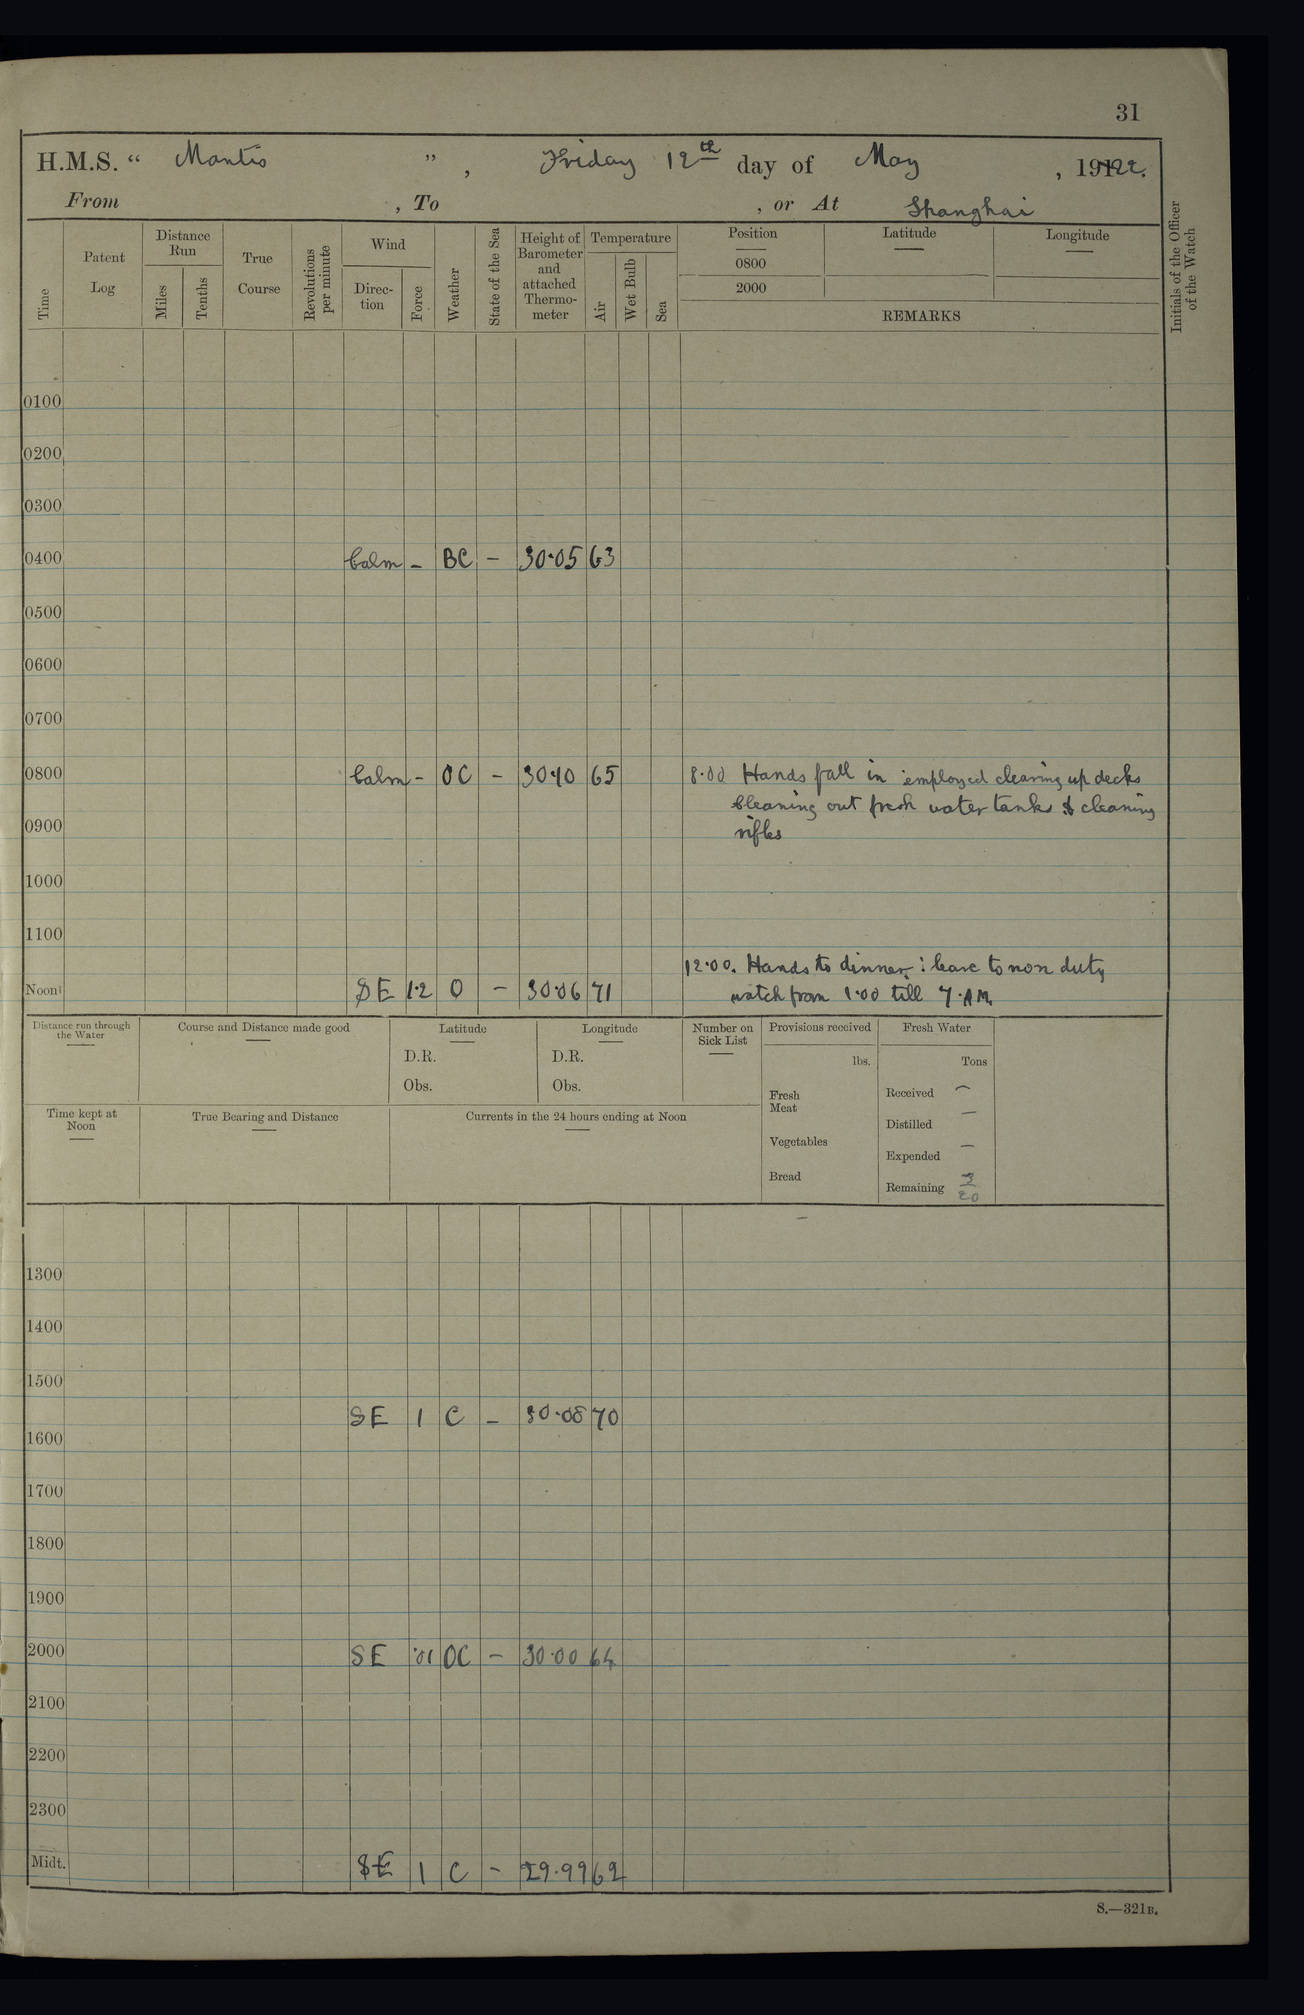 31
H.M.S. “ Mantis ”, Friday 12th day of May, 1922.
From , To , or At Shanghai
Time Patent Log Distance Run Miles Tenths True Course Revolutions per minute Wind Direc-tion Force Weather State of the Sea Height of Barometer and attached Thermo-meter Temperature Air Wet Bulb Sea Position Latitude Longitude Initials of the Officer of the Watch
0800
2000
REMARKS
0100
0200
0300
0400 Calm - BC - 30.05 63
0500
0600
0700
0800 Calm - OC - 30.10 65 8.00 Hands fall in employed clearing up decks
Cleaning out fresh water tanks & cleaning
0900 rifles
1000
1100
12.00. Hands to dinner: leave to non duty
Noon SE 1.2 O - 30.06 71 watch from 1.00 till 7.AM.
Distance run through the Water Course and Distance made good Latitude Longitude Number on Sick List Provisions received Fresh Water
D.R. D.R. lbs. Tons
Obs. Obs. Fresh Meat Received -
Time kept at Noon True Bearing and Distance Currents in the 24 hours ending at Noon
Distilled -
Vegetables Expended -
Bread Remaining
1300
1400
1500
SE 1 C - 30.08 70
1600
1700
1800
1900
2000 SE OC - 30.00 64
2100
2200
2300
Midt. SE 1 C - 29.99 62
S.—321B.